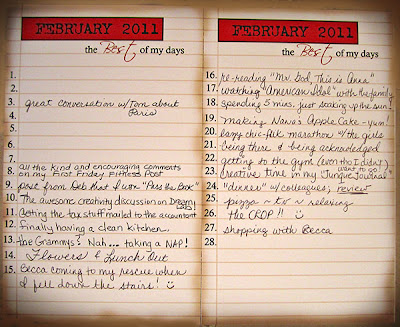 FEBRUARY 2011
the Best of my days
1.
2.
3. great conversation w/Tom about
4. Paris
5.
6.
7.
8. all the kind and encouraging comments
on my First Friday Fithess Post
9. post from Deb that I won "Pass the Book"
10. The awesome creativity discussion on Dream Lab
11. Getting the tax stuff mailed to the accountant
12. Finally having a clean kitchen.
13. the Grammys? Nah... taking a NAP!
14. Flowers & Lunch Out
15. Becca coming to my rescue when
I fell down the stairs! ☺
FEBRUARY 2011
the Best of my days
16. re-reading "Mr. God, This is Anna"
17. watching "American Idol" with the family
18. spending 5 mins. just soaking up the sun!
19. making Nawa's Apple Cake - yum!
20. lazy chic-flick marathon w/the girls
21. being there & being acknowledged
22. getting to the gym (even tho I didn't want to go)
23. creative time in my "Jungle Journal"
24. "dinner" w/colleagues; review
25. pizza ~ tv ~ relaxing
26. the CROP!! ☺
27. shopping with Becca
28.